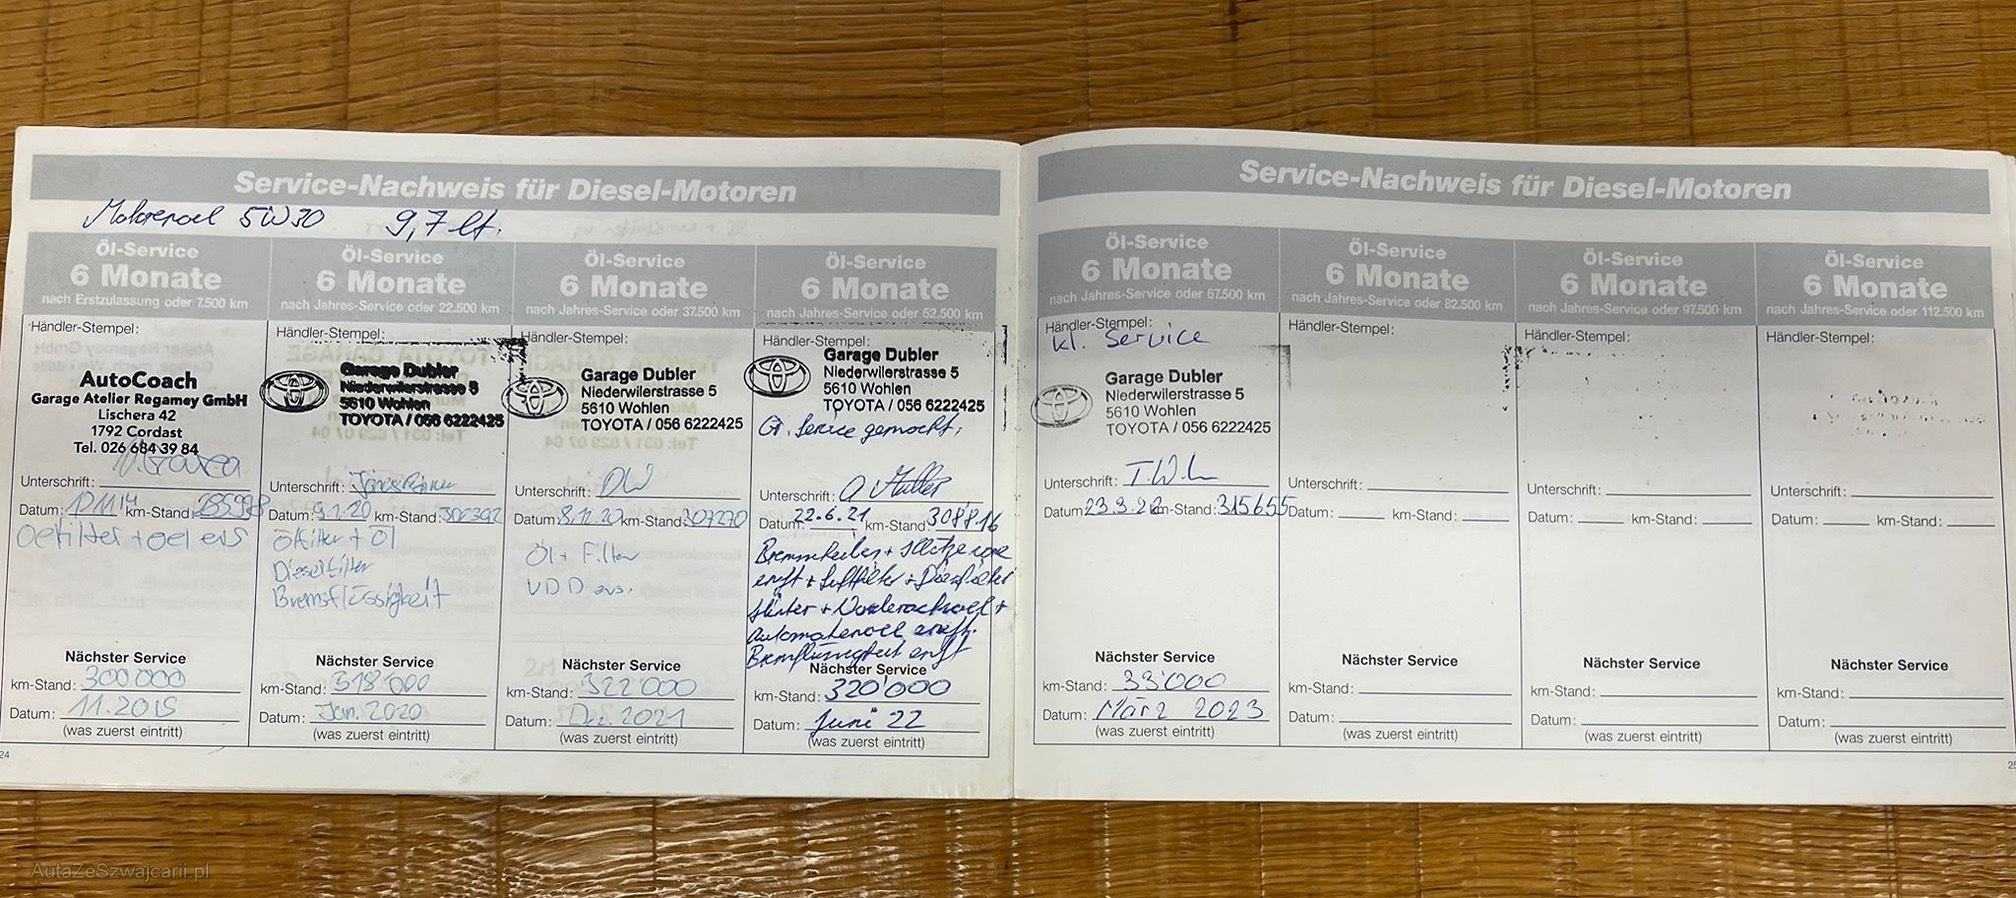 Service-Nachweis für Diesel-Motoren
Motorenoel 5W30 9,7 lt.
Öl-Service
6 Monate
nach Erstzulassung oder 7.500 km
Händler-Stempel:
AutoCoach
Garage Atelier Regamey GmbH
Lischera 42
1792 Cordast
Tel. 026 684 39 84
Unterschrift:
Datum: km-Stand:
Oelfilter + oel ers
Nächster Service
km-Stand: 300'000
Datum: 11.2015
(was zuerst eintritt)
Öl-Service
6 Monate
nach Jahres-Service oder 22.500 km
Händler-Stempel:
Garage Dubler
Niederwilerstrasse 5
5610 Wohlen
TOYOTA / 056 6222425
Unterschrift:
Datum: 9.1.20 km-Stand: 302392
Ölfilter + Öl
Dieselfilter
Bremsflüssigkeit
Nächster Service
km-Stand: 318'000
Datum: Jan. 2020
(was zuerst eintritt)
Öl-Service
6 Monate
nach Jahres-Service oder 37.500 km
Händler-Stempel:
Garage Dubler
Niederwilerstrasse 5
5610 Wohlen
TOYOTA / 056 6222425
Unterschrift: DW
Datum: 8.12.20 km-Stand: 307270
Öl + Filter
VDD ers.
Nächster Service
km-Stand: 322'000
Datum: Dez. 2021
(was zuerst eintritt)
Öl-Service
6 Monate
nach Jahres-Service oder 52.500 km
Händler-Stempel:
Garage Dubler
Niederwilerstrasse 5
5610 Wohlen
TOYOTA / 056 6222425
Gr. Service gemacht,
Unterschrift:
Datum: 22.6.21 km-Stand: 308816
+
+ Luftfilter + Dieselfilter
Hinter + Vorderachsoel +
Automatenoel
Bremsflüssigkeit
Nächster Service
km-Stand: 320'000
Datum: Juni 22
(was zuerst eintritt)
24
Service-Nachweis für Diesel-Motoren
Öl-Service
6 Monate
nach Jahres-Service oder 67.500 km
Händler-Stempel:
kl. Service
Garage Dubler
Niederwilerstrasse 5
5610 Wohlen
TOYOTA / 056 6222425
Unterschrift:
Datum 23.3.22 km-Stand: 315655
Nächster Service
km-Stand: 33'000
Datum: März 2023
(was zuerst eintritt)
Öl-Service
6 Monate
nach Jahres-Service oder 82.500 km
Händler-Stempel:
Unterschrift:
Datum: km-Stand:
Nächster Service
km-Stand:
Datum:
(was zuerst eintritt)
Öl-Service
6 Monate
nach Jahres-Service oder 97.500 km
Händler-Stempel:
Unterschrift:
Datum: km-Stand:
Nächster Service
km-Stand:
Datum:
(was zuerst eintritt)
Öl-Service
6 Monate
nach Jahres-Service oder 112.500 km
Händler-Stempel:
Unterschrift:
Datum: km-Stand:
Nächster Service
km-Stand:
Datum:
(was zuerst eintritt)
AutaZeSzwajcarii.pl